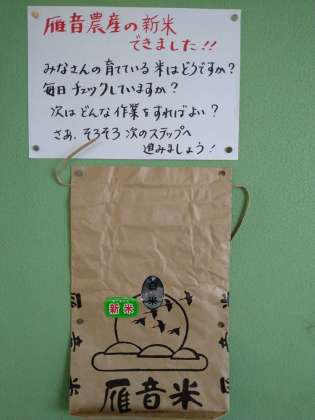 雁音農産の新米
できました!!
みなさんの育てている米はどうですか?
毎日チェックしていますか?
次はどんな作業をすればよい?
さぁ、そろそろ次のステップへ
進みましょう!
白米
新米
雁音米